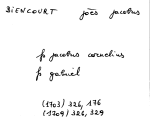 BIENCOURT joẽs jacobus
p jacobus cornelius
p gabriël
(1703) 326, 176
(1709) 326, 329